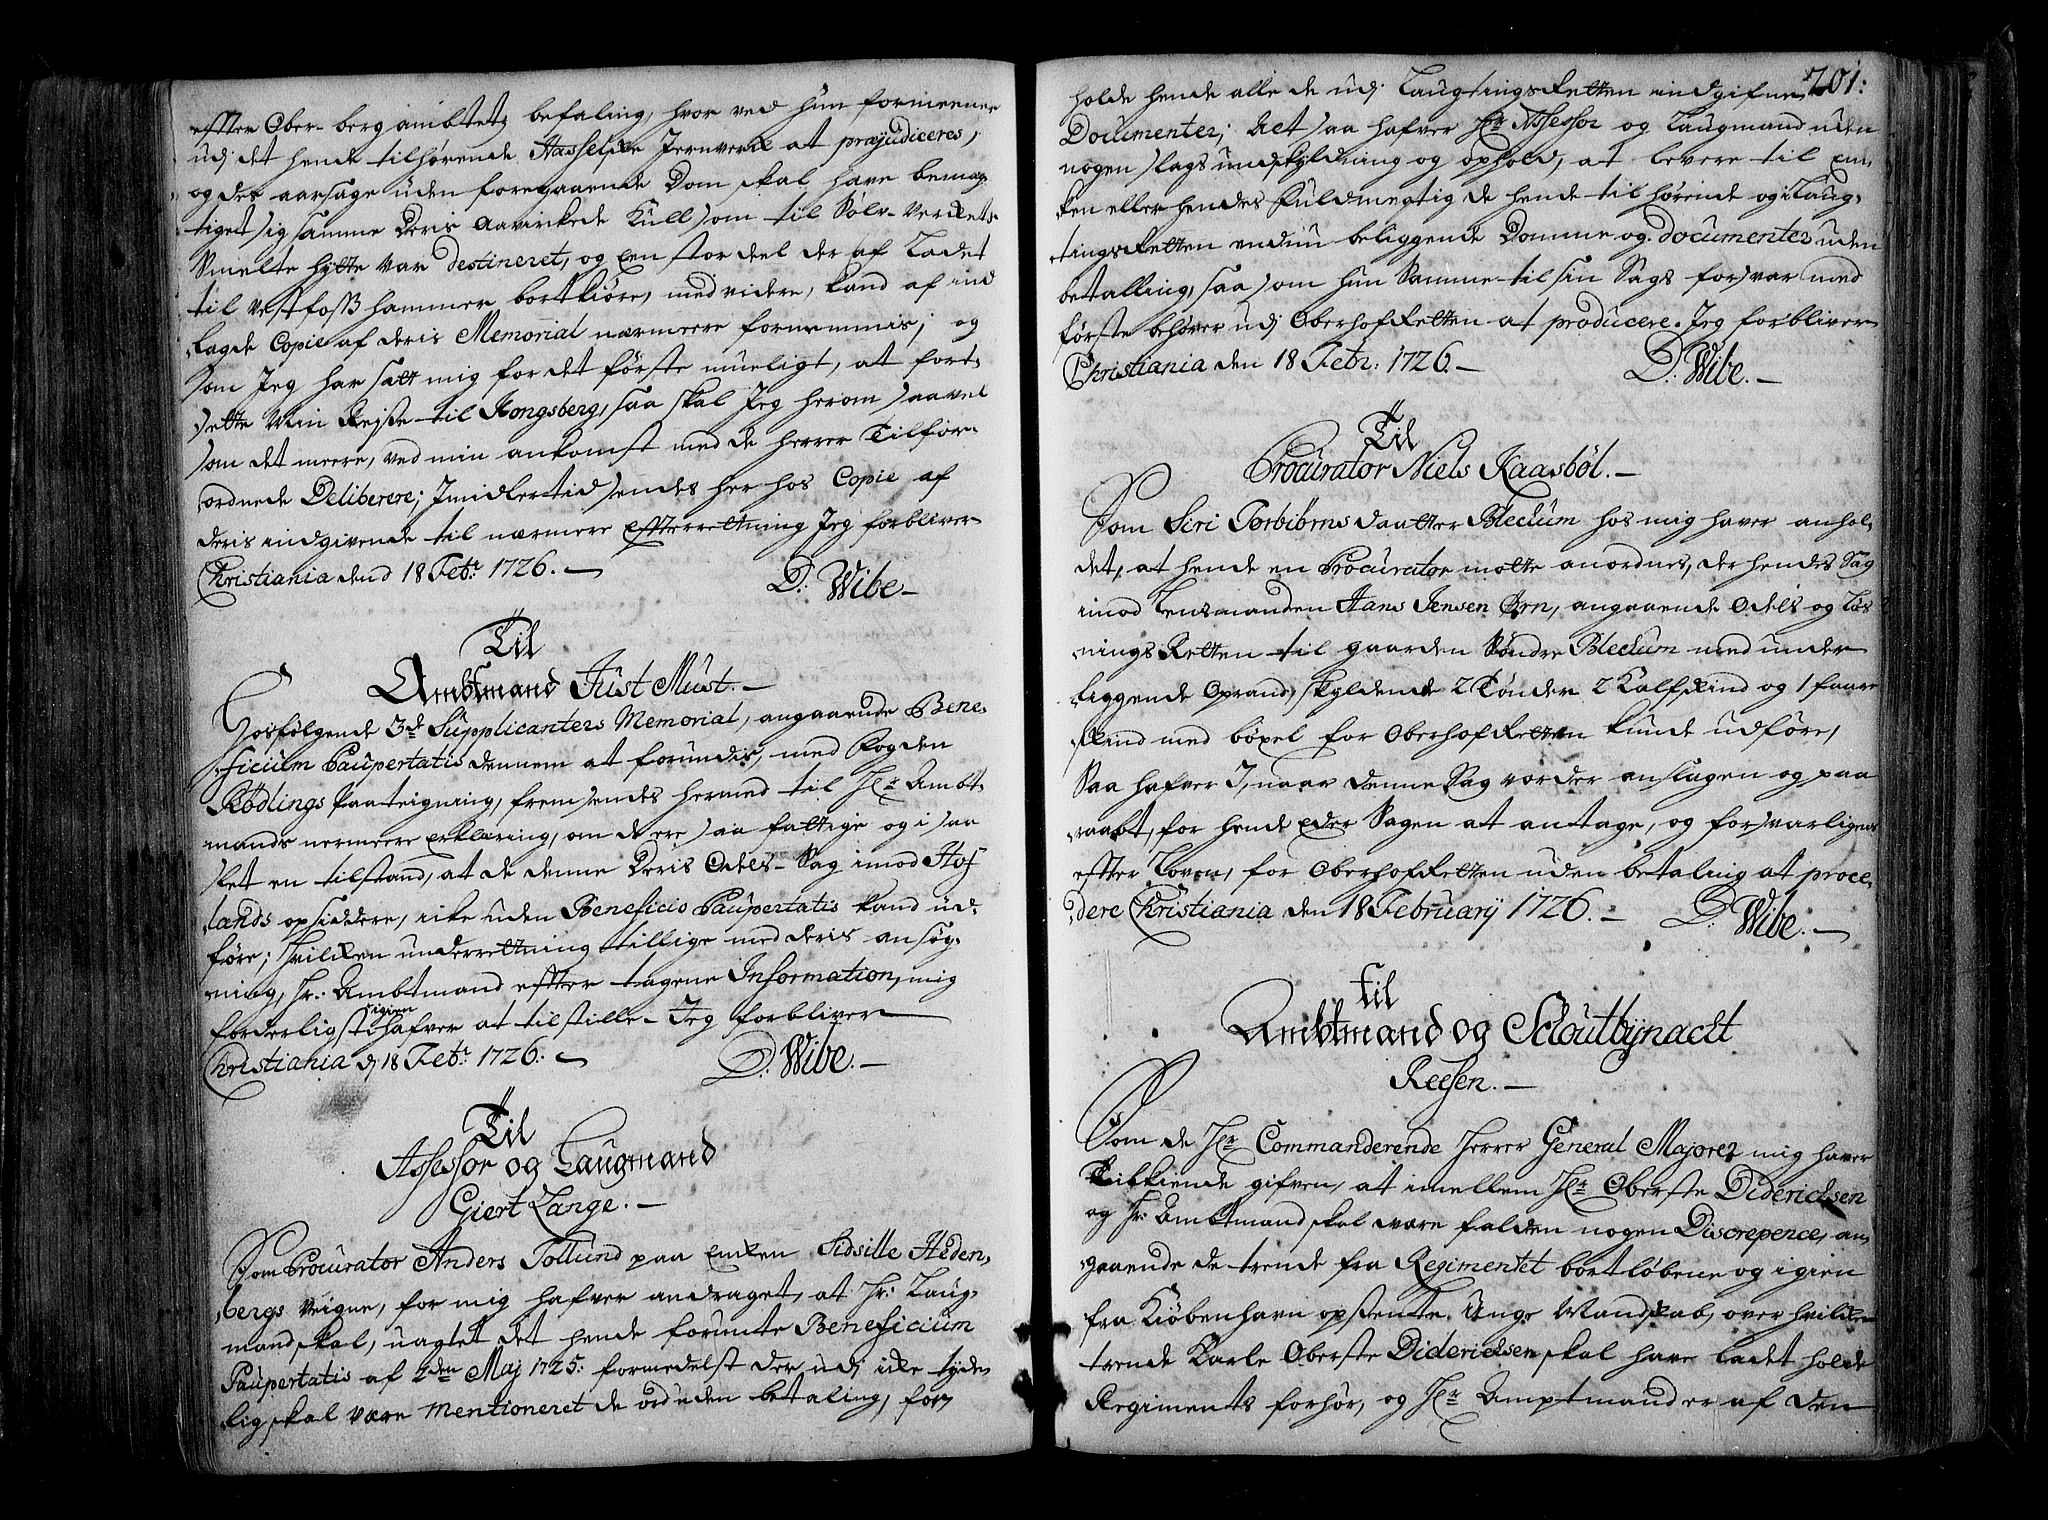 effter Ober-bergambtetz befaling, hvor ved hun formeener
udj det hende tilhørende Hassel Jernverck at præjudiceres,
og des aarsage uden foregaaende Dom skal have bemæg-
tiget sig samme Deris aavirckede Kull som til Sølv-Verckets
Smelte hytte var destineret, og een stor deel der af Ladet
til Vestfoss hammer bortkiøre, med videre, kand af ind
lagde Copie af deris Memorial nærmeere fornemmis; og
som Jeg har satt mig for det første mueligt, at fort-
sette min Rejse til Kongsberg, saa skal Jeg herom saavel
som det meere, ved min ankomst med de herrer Tilfor-
ordnede Deliberere; Imidlertid sendes her hos Copie af
deris indgivende til nærmere effterrettning Jeg forbliver
Christiania dend 18 Febr: 1726.
D: Wibe
Til
Ambtmand Just Must.
Hosfølgende 3de Supplicanters Memorial, angaaende Bene-
ficium Paupertatis dennem at forundis, med Fogden
Rødlings paateigning, fremsendes hermed til Hr Ambt-
mands nermeere erklæring, om de ere saa fattige og i saa
slet en tilstand, at de denne Deris Odels-Sag imod Hof-
lands opsiddere, icke uden Beneficio Paupertatis kand ud-
føre; Hvilcken underrettning tillige med deris ansøg-
ning, Hr: Ambtmand effter tagene Information, mig
igien
forderligst hafver at tilstille. Jeg forbliver
Christiania d 18 Febr: 1726.
D: Wibe.
Til
Assessor og Laugmand
Giert Lange.
Som Procurator Anders Tollund paa Encken Sidsille Heden-
bergs Veigne, for mig hafver andraget, at Hr: Laug-
mand skal, uagtet det hende forunte Beneficium
Paupertatis af 2den Maj 1725: formedelst der udj icke tyde-
lig skal være mentioneret de ord uden betaling, for
201:
holde hende alle de udj Laugtings Retten indgifne
Documenter; Det saa hafver Hr Assessor og Laugmand uden
nogen slags undskyldning og ophold, at levere til En-
ken eller hendes Fuldmegtig de hende tilhørende og i Laug-
tings Retten endnu beliggende Domme og documenter uden
betalling, saa som hun Samme til sin Sags forsvar med
første behøver udj OberhofRetten at producere. Jeg forbliver
Christiania den 18 Febr: 1726.
D: Wibe.
Til
Procurator Niels Kaasbøl.
Som Siri Torbiørns daatter Bleckum hos mig haver anhol-
det, at hende en Procurator motte anordnes, der hendes Sag
imod Lensmanden Hans Jensen Ørn, angaaende Odels og Løs-
nings Retten til gaarden Søndre Bleckum med under
liggende Oprand, skyldende 2 Tønder 2 Kalfskind og 1 faare
skind med bøxel for OberhofRetten kunde udføre,
Saa hafver I, naar denne Sag vorder anslagen og paa
raabt, for hende Eder Sagen at anttage, og forsvarligen
effter Loven, for OberhofRetten uden betaling at proce-
dere Christiania den 18 Februarij 1726.
D: Wibe.
Til
Ambtmand og Schoutbynacht
Reesen.
Som de Hr Commanderende Herrer General Majorer mig haver
tilkiende gifven, at imellem Hr Oberste Diderichsen
og Hr: Ambtmand skal være falden nogen Discrepence, an-
gaaende de trende fra Regimentet bortløbene og igien
fra Kiøbenhavn opsendte Unge Mandskab, over hvilcke
trende Karle Oberste Diderichsen skal have ladet holde
Regiments forhør, og Hr Amptmand er af den